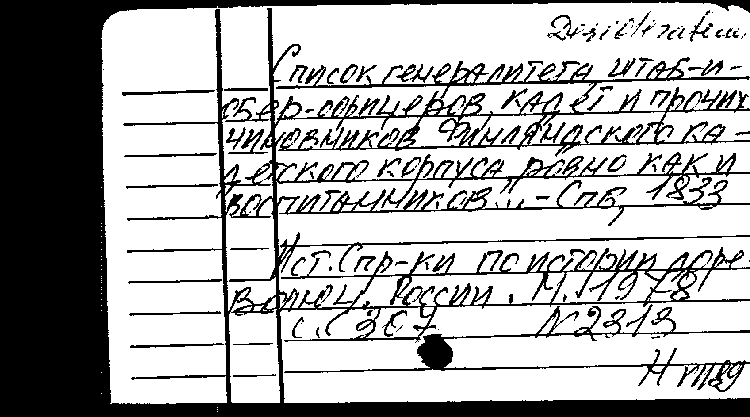 Desideratum
Список генералитета, штаб-и-
обер-офицеров, кадет и прочих
чиновников Финляндского ка-
детского корпуса, равно как и
воспитанников... - Спб, 1833
Ист. Спр-ки по истории доре-
волюц. России. М., 1978
с. 367 N2313